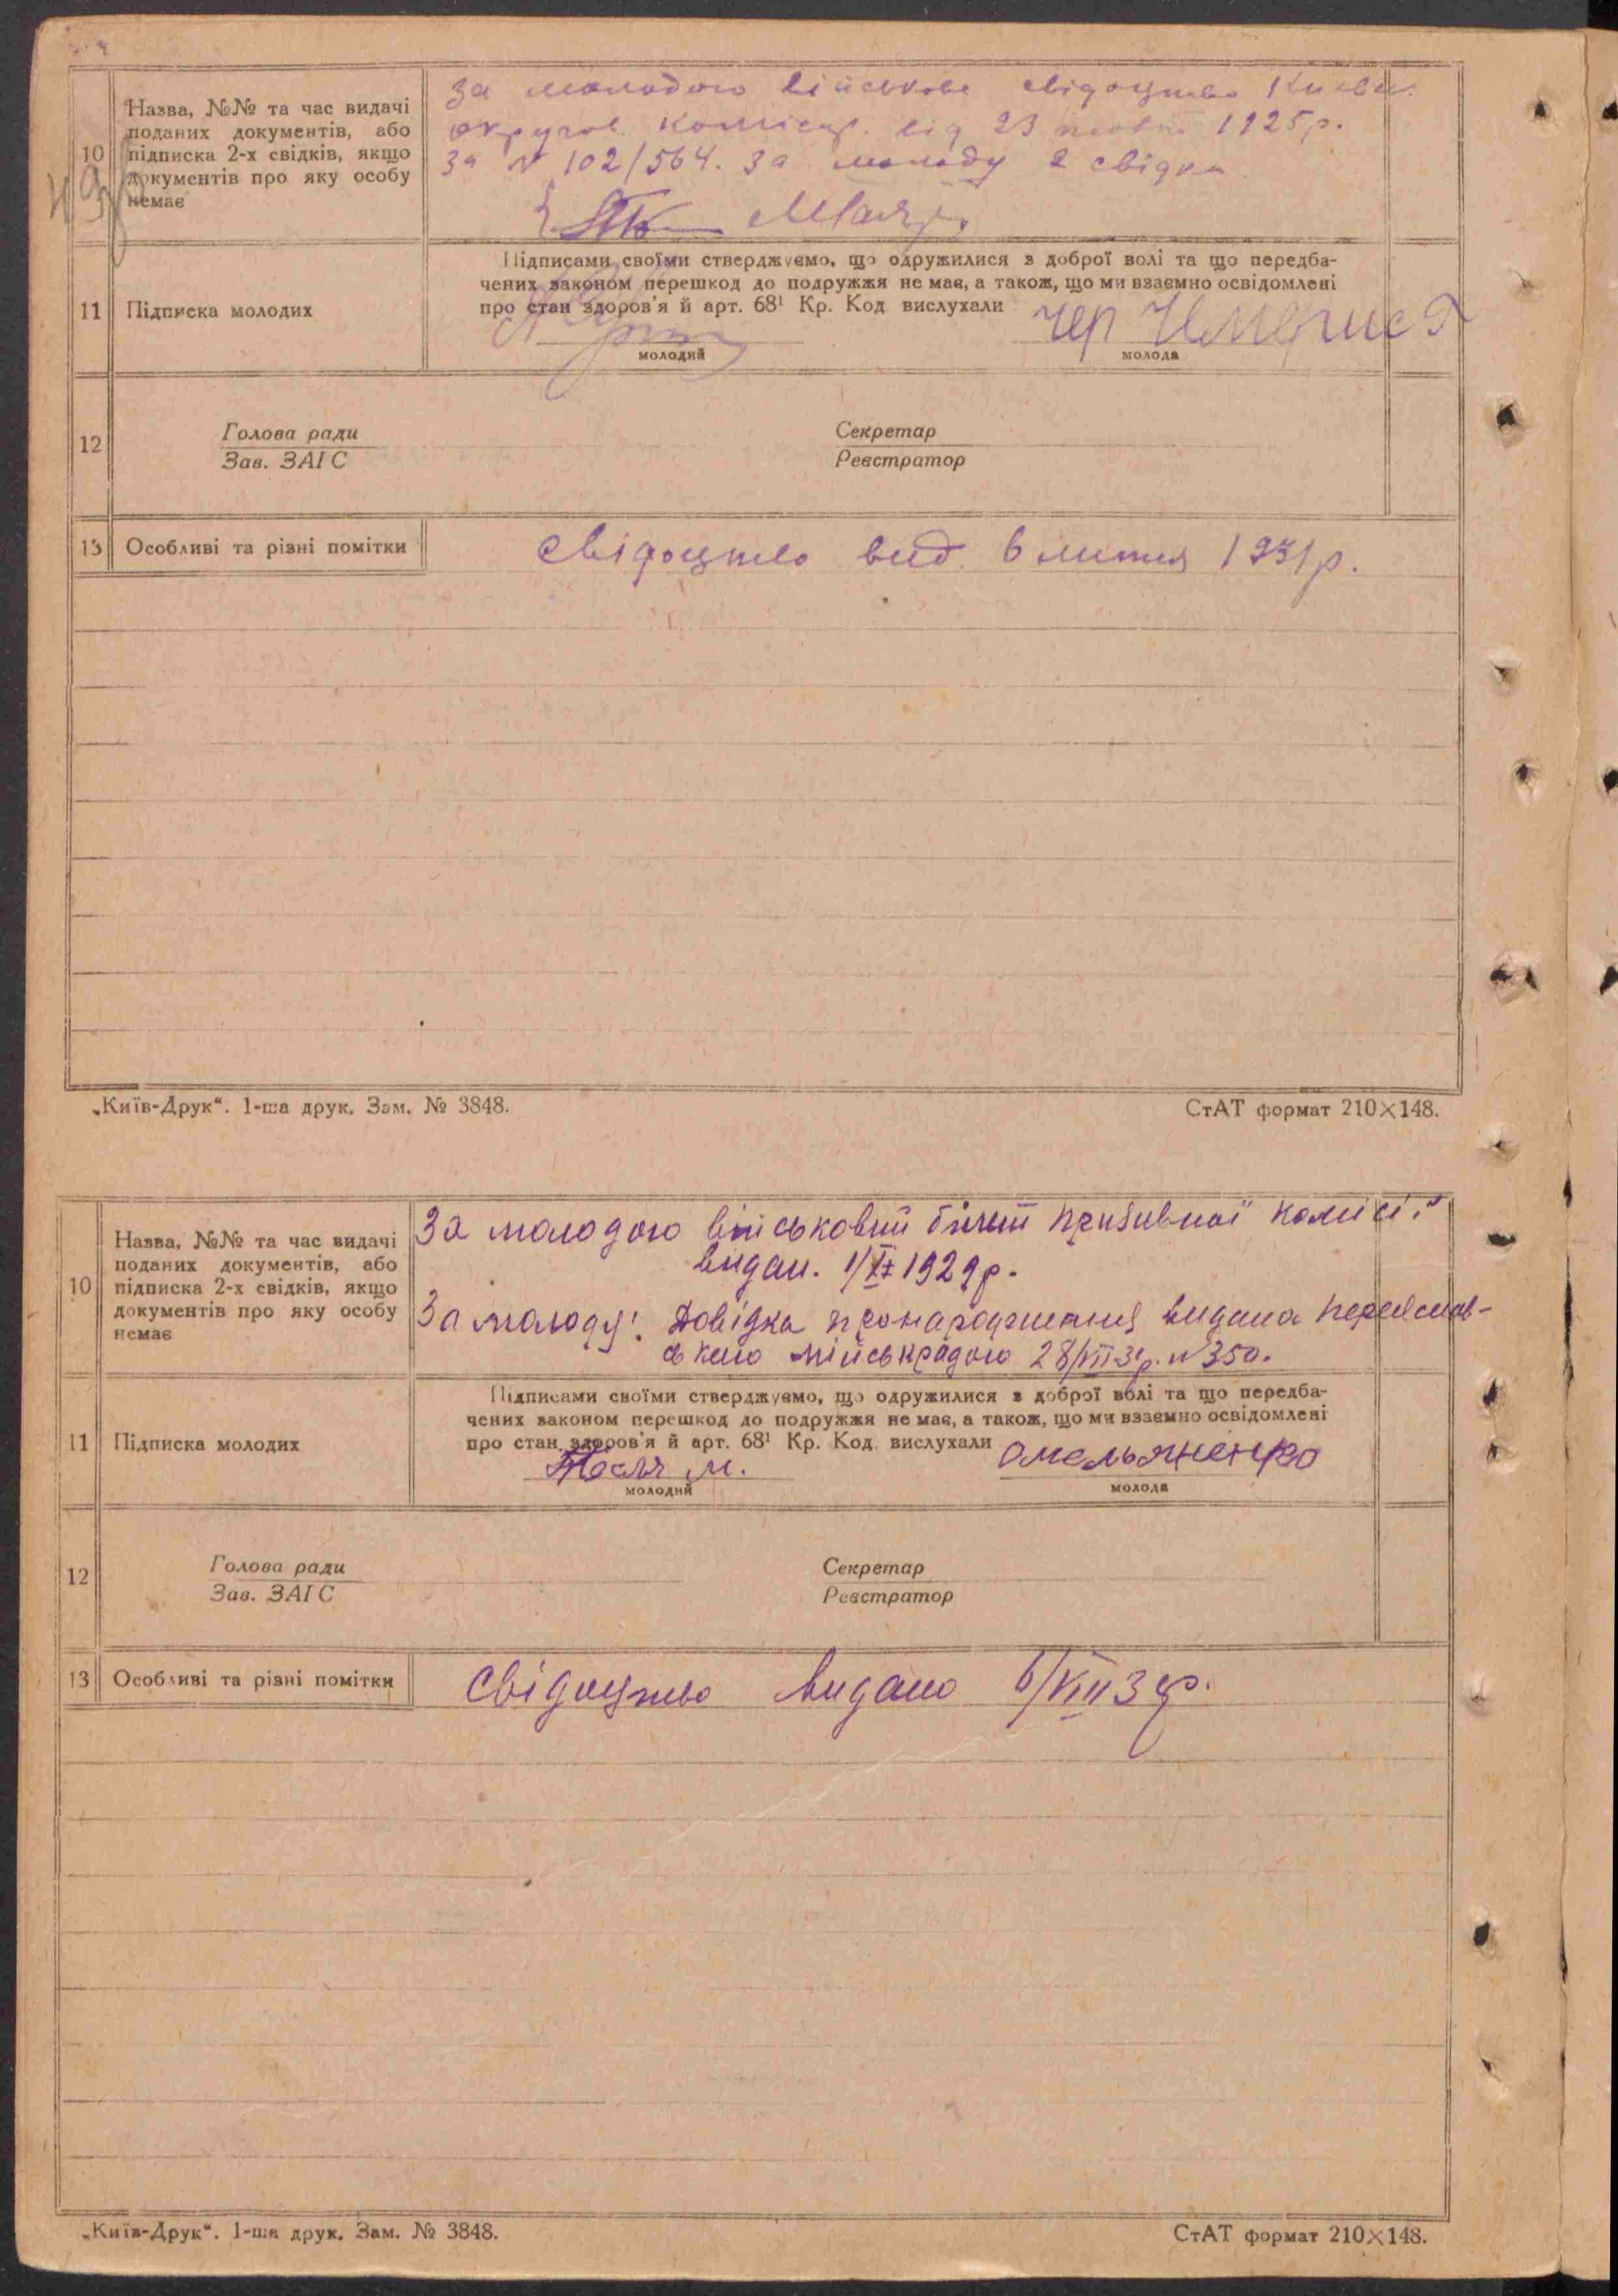 10
Назва, №№ та час видачі
поданих документів, або
підписка 2-х свідків, якщо
документів про яку особу
немає
За молодого військове свідоцтво Київськ.
округов. комісар. від 23 1925 р.
за № 102/564. За молоду 2 свідки
11
Підписка молодих
Підписами своїми стверджуємо, що одружилися з доброї волі та що передба-
чених законом перешкод до подружжя не має, а також, що ми взаємно освідомлені
про стан здоров'я й арт. 68¹ Кр. Код вислухали
молодий
молода
12
Голова ради
Зав. ЗАГС
Секретар
Реєстратор
13
Особливі та різні помітки
Свідоцтво вид. 6 липня 1931 р.
„Київ-Друк“. 1-ша друк. Зам. № 3848.
СтАТ формат 210×148.
10
Назва, №№ та час видачі
поданих документів, або
підписка 2-х свідків, якщо
документів про яку особу
немає
За молодого військовий білет призивної комісії
видан. 1929 р.
За молоду: Довідка про народження видана Переяслав-
ською міськрадою 28/VII-31р. № 350.
11
Підписка молодих
Підписами своїми стверджуємо, що одружилися з доброї волі та що передба-
чених законом перешкод до подружжя не має, а також, що ми взаємно освідомлені
про стан здоров'я й арт. 68¹ Кр. Код. вислухали
Тесля М.
Омельяненко
молодий
молода
12
Голова ради
Зав. ЗАГС
Секретар
Реєстратор
13
Особливі та різні помітки
Свідоцтво видано 6/VIII 31р.
„Київ-Друк“. 1-ша друк. Зам. № 3848.
СтАТ формат 210×148.